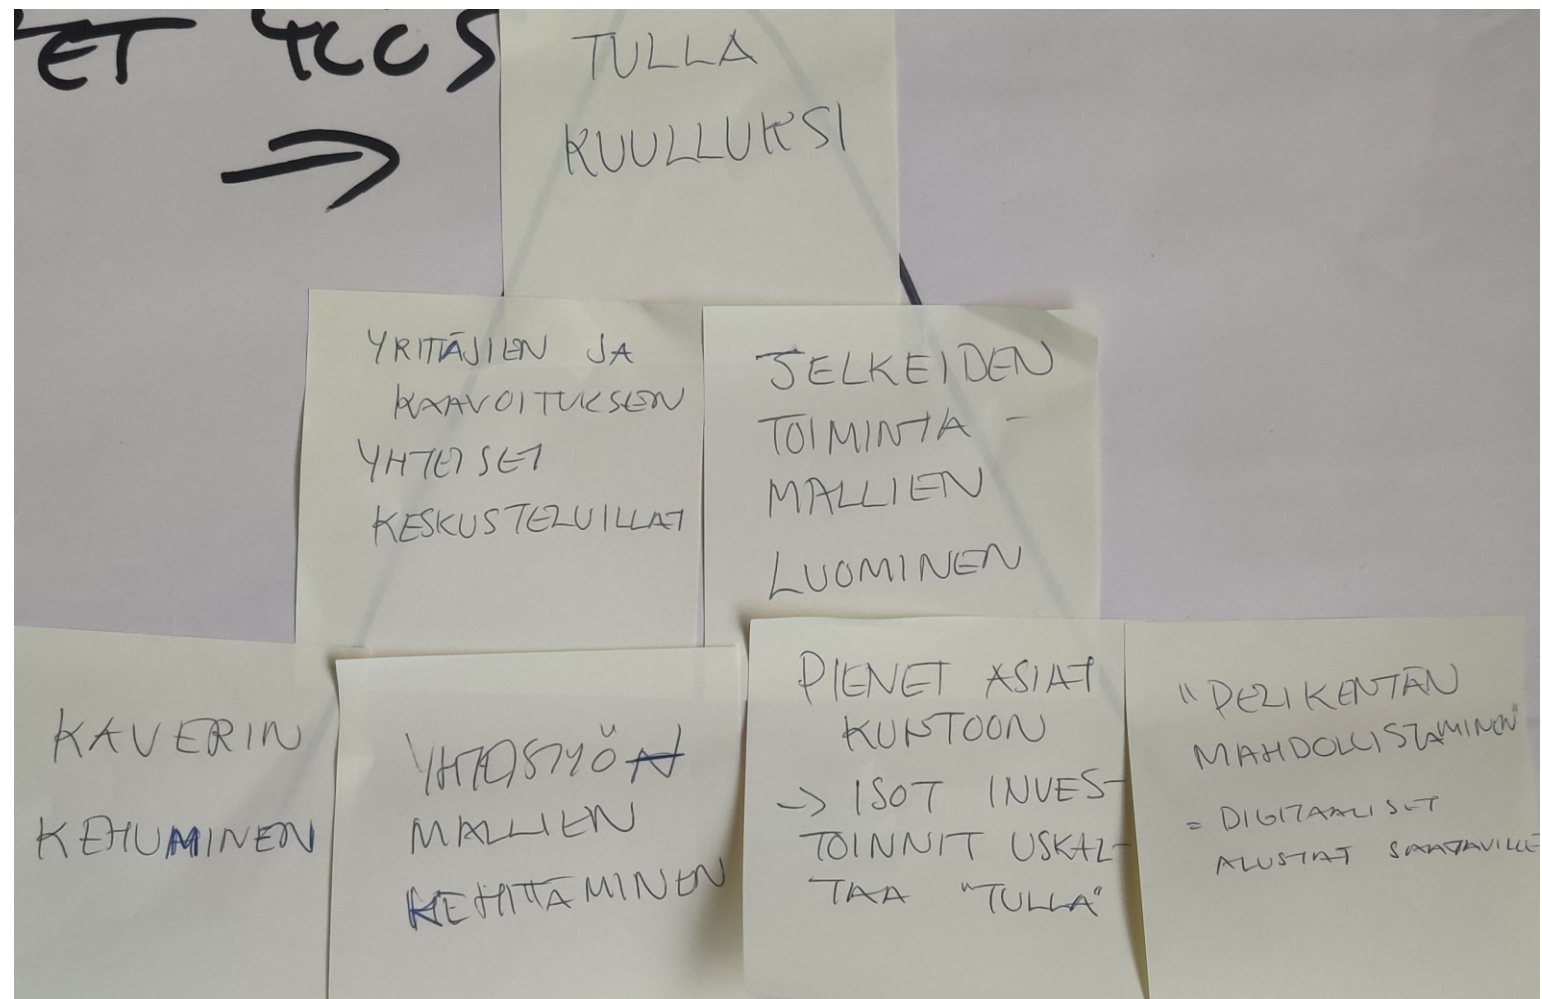 ET YLÖS
TULLA
KUULLUKSI
YRITTÄJIEN JA
KAAVOITUKSEN
YHTEISET
KESKUSTELUILLAT
SELKEIDEN
TOIMINTA-
MALLIEN
LUOMINEN
KAVERIN
KEHUMINEN
YHTEISTYÖN
MALLIEN
KEHITTÄMINEN
PIENET ASIAT
KUNTOON
-> ISOT INVES-
TOINNIT USKAL-
TAA "TULLA"
"PELIKENTÄN
MAHDOLLISTAMINEN"
= DIGITAALISET
ALUSTAT SAATAVILLE